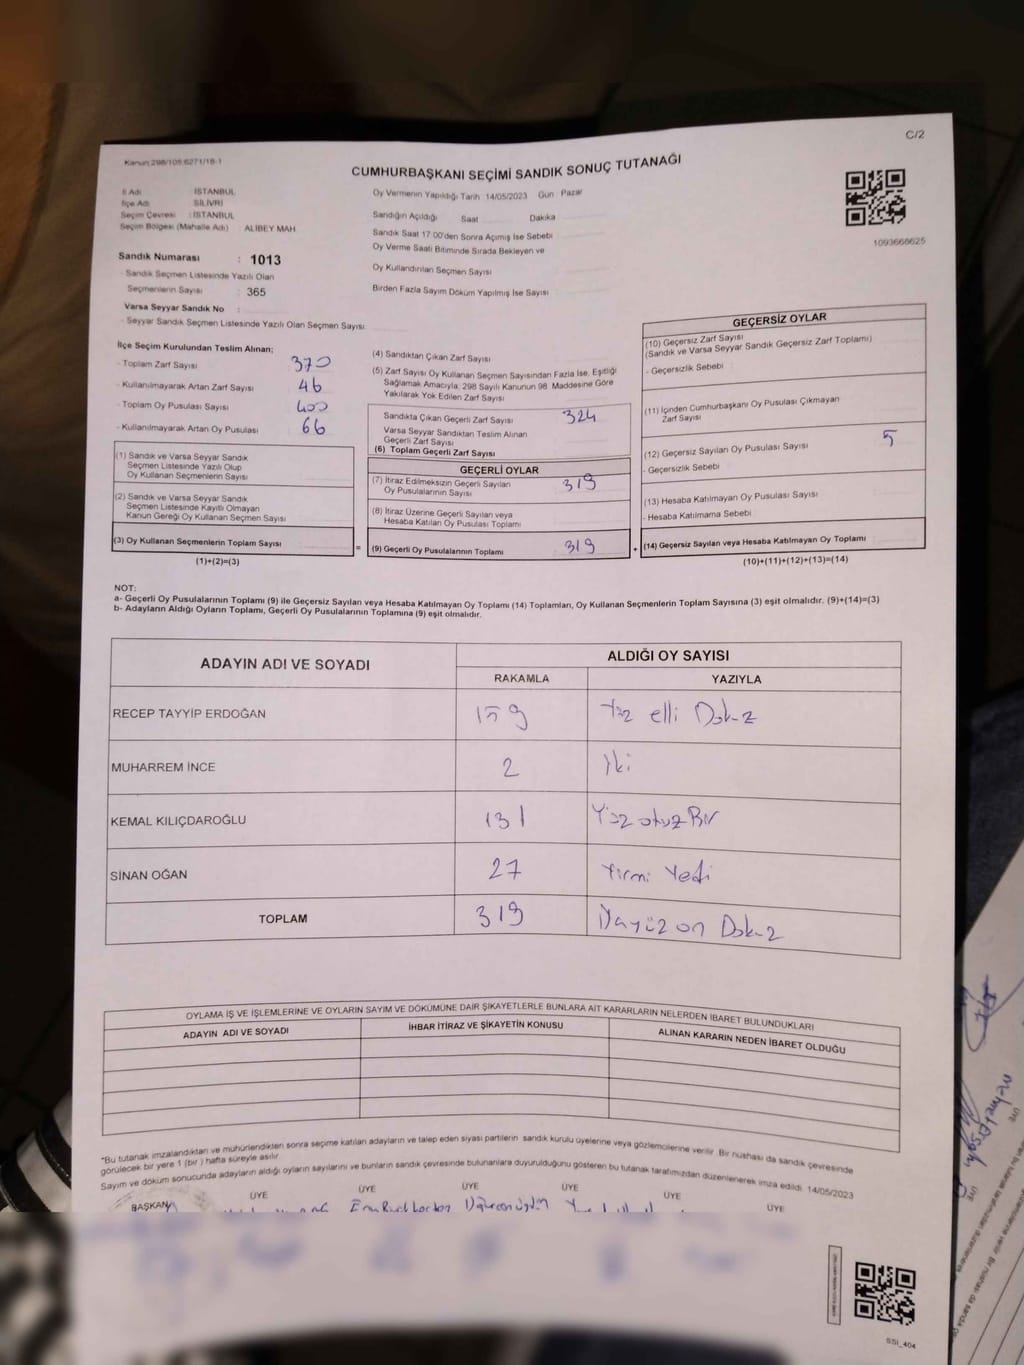 C/2
Kanun:298/105 6271/18-1
CUMHURBAŞKANI SEÇİMİ SANDIK SONUÇ TUTANAĞI
İl Adı : İSTANBUL
İlçe Adı : SİLİVRİ
Seçim Çevresi : İSTANBUL
Seçim Bölgesi (Mahalle Adı) : ALİBEY MAH
Sandık Numarası : 1013
- Sandık Seçmen Listesinde Yazılı Olan
Seçmenlerin Sayısı : 365
Varsa Seyyar Sandık No :
- Seyyar Sandık Seçmen Listesinde Yazılı Olan Seçmen Sayısı:
Oy Vermenin Yapıldığı Tarih 14/05/2023 Gün Pazar
Sandığın Açıldığı Saat Dakika
Sandık Saat 17:00'den Sonra Açımış İse Sebebi
Oy Verme Saati Bitiminde Sırada Bekleyen ve
Oy Kullandırılan Seçmen Sayısı
Birden Fazla Sayım Döküm Yapılmış İse Sayısı
1093668625
İlçe Seçim Kurulundan Teslim Alınan;
- Toplam Zarf Sayısı 370
- Kullanılmayarak Artan Zarf Sayısı 46
- Toplam Oy Pusulası Sayısı 400
- Kullanılmayarak Artan Oy Pusulası 66
(1) Sandık ve Varsa Seyyar Sandık
Seçmen Listesinde Yazılı Olup
Oy Kullanan Seçmenlerin Sayısı
(2) Sandık ve Varsa Seyyar Sandık
Seçmen Listesinde Kayıtlı Olmayan
Kanun Gereği Oy Kullanan Seçmen Sayısı
(3) Oy Kullanan Seçmenlerin Toplam Sayısı
(1)+(2)=(3)
=
(4) Sandıktan Çıkan Zarf Sayısı
(5) Zarf Sayısı Oy Kullanan Seçmen Sayısından Fazla İse, Eşitliği
Sağlamak Amacıyla; 298 Sayılı Kanunun 98. Maddesine Göre
Yakılarak Yok Edilen Zarf Sayısı
Sandıkta Çıkan Geçerli Zarf Sayısı 324
Varsa Seyyar Sandıktan Teslim Alınan
Geçerli Zarf Sayısı
(6) Toplam Geçerli Zarf Sayısı
GEÇERLİ OYLAR
(7) İtiraz Edilmeksizin Geçerli Sayılan
Oy Pusulalarının Sayısı 319
(8) İtiraz Üzerine Geçerli Sayılan veya
Hesaba Katılan Oy Pusulası Toplamı
(9) Geçerli Oy Pusulalarının Toplamı 319
+
GEÇERSİZ OYLAR
(10) Geçersiz Zarf Sayısı
(Sandık ve Varsa Seyyar Sandık Geçersiz Zarf Toplamı)
- Geçersizlik Sebebi
(11) İçinden Cumhurbaşkanı Oy Pusulası Çıkmayan
Zarf Sayısı
(12) Geçersiz Sayılan Oy Pusulası Sayısı 5
- Geçersizlik Sebebi
(13) Hesaba Katılmayan Oy Pusulası Sayısı
- Hesaba Katılmama Sebebi
(14) Geçersiz Sayılan veya Hesaba Katılmayan Oy Toplamı
(10)+(11)+(12)+(13)=(14)
NOT:
a- Geçerli Oy Pusulalarının Toplamı (9) ile Geçersiz Sayılan veya Hesaba Katılmayan Oy Toplamı (14) Toplamları, Oy Kullanan Seçmenlerin Toplam Sayısına (3) eşit olmalıdır. (9)+(14)=(3)
b- Adayların Aldığı Oyların Toplamı, Geçerli Oy Pusulalarının Toplamına (9) eşit olmalıdır.
ADAYIN ADI VE SOYADI ALDIĞI OY SAYISI
RAKAMLA YAZIYLA
RECEP TAYYİP ERDOĞAN 159 Yüz elli Dokuz
MUHARREM İNCE 2 İki
KEMAL KILIÇDAROĞLU 131 Yüz otuz Bir
SİNAN OĞAN 27 Yirmi Yedi
TOPLAM 319 Üçyüz on Dokuz
OYLAMA İŞ VE İŞLEMLERİNE VE OYLARIN SAYIM VE DÖKÜMÜNE DAİR ŞİKAYETLERLE BUNLARA AİT KARARLARIN NELERDEN İBARET BULUNDUKLARI
ADAYIN ADI VE SOYADI İHBAR İTİRAZ VE ŞİKAYETİN KONUSU ALINAN KARARIN NEDEN İBARET OLDUĞU
*Bu tutanak imzalandıktan ve mühürlendikten sonra seçime katılan adayların ve talep eden siyasi partilerin sandık kurulu üyelerine veya gözlemcilerine verilir. Bir nüshası da sandık çevresinde
görülecek bir yere 1 (bir) hafta süreyle asılır.
Sayım ve döküm sonucunda adayların aldığı oyların sayılarını ve bunların sandık çevresinde bulunanlara duyurulduğunu gösteren bu tutanak tarafımızdan düzenlenerek imza edildi. 14/05/2023
BAŞKAN ÜYE ÜYE ÜYE ÜYE ÜYE ÜYE
SSİ_404